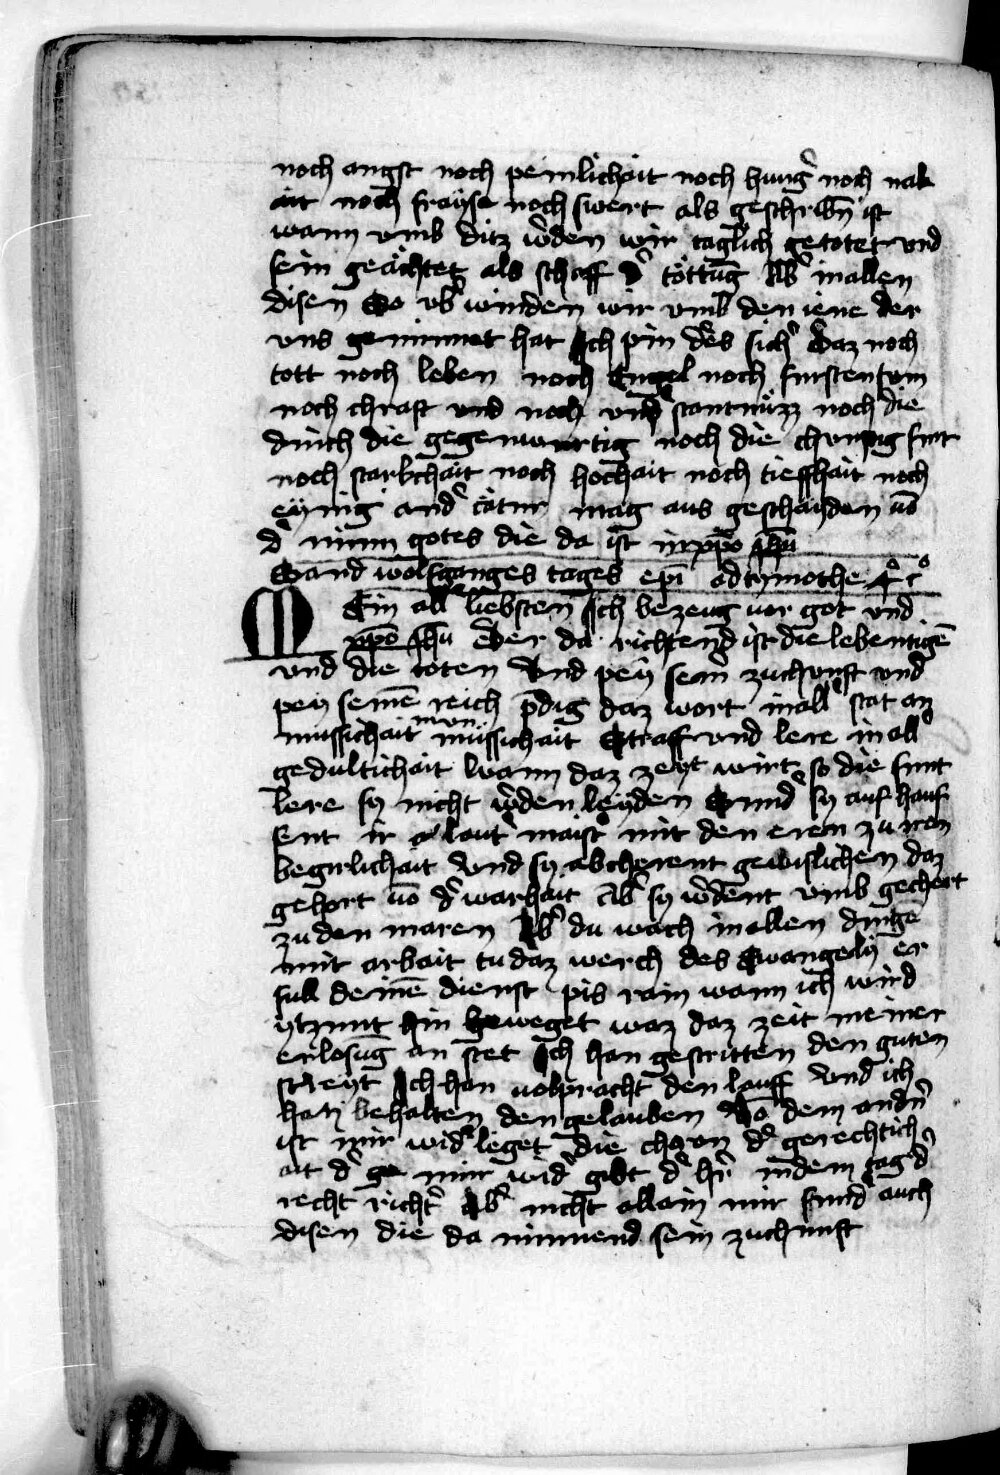 noch angst noch peinlichait noch hung̃ noch nak
ait noch frayse noch swert als geschribñ ist
wann vmb ditz w̃den wir taglich getotet vnd
sein geachtet als schaff d̃ töttũg Ab̃ in allen
disen So vb̃ winden wir vmb den iene der
vns geminnet hat Ich pin des sich̃ Daz noch
tott noch leben noch Engel noch furstentum
noch chraft vnd noch stantnüzz noch die
dinch die gegenwurtig noch die chunftig sint
noch starkchait noch hochait noch tieffhait noch
eynig and̃ cãtur mag aus geschayden uõ
d̃ minn gotes die da ist in xp̃o ih̃u
Sand wolfganges tages ep̃i ad tymothe 4° c°
Mein all̃ liebsten Ich bezeug vor got vnd
xp̃o ih̃u Der da richtend ist die lebentigẽ
vnd die toten Vnd pey sein̄ zuchunft vnd
pey seinẽ reich p̃dig daz wort in all̃ stat an
mussichait mon müssichait Straff vnd lere in all̃
gedultichait Wann daz zeyt wirt so die sunt
lere sy nicht w̃den leyden Sund̃ sy auf hauf
Ent ir laut̃ maist̃ mit den eren zu iren
begirlichait Vnd sy abcherent gewislichen daz
gehort uõ d̃ warhait ab̃ sy w̃dent vmb gechert
zu den maren Ab̃ du wach in allen dingẽ
mit arbait tu daz werch des Ewangely er
full deinẽ dienst pis rain wann ich wird
ytzunt hin beweget waz daz zeit meiner
erlosũg an stet Ich han gestritten den guten
streyt Ich han uolpracht den lauff Vnd ich
han behalten den gelauben Võ dem andñ
ist mir wid̃ leget die chron d̃ gerechtich
ait d̃ ge mir wid̃ gibt d̃ hr̃ in dem tag d̃
recht richt̃ Ab̃ nicht allain mir sund̃ auch
disen die da minnend sein zuchunft